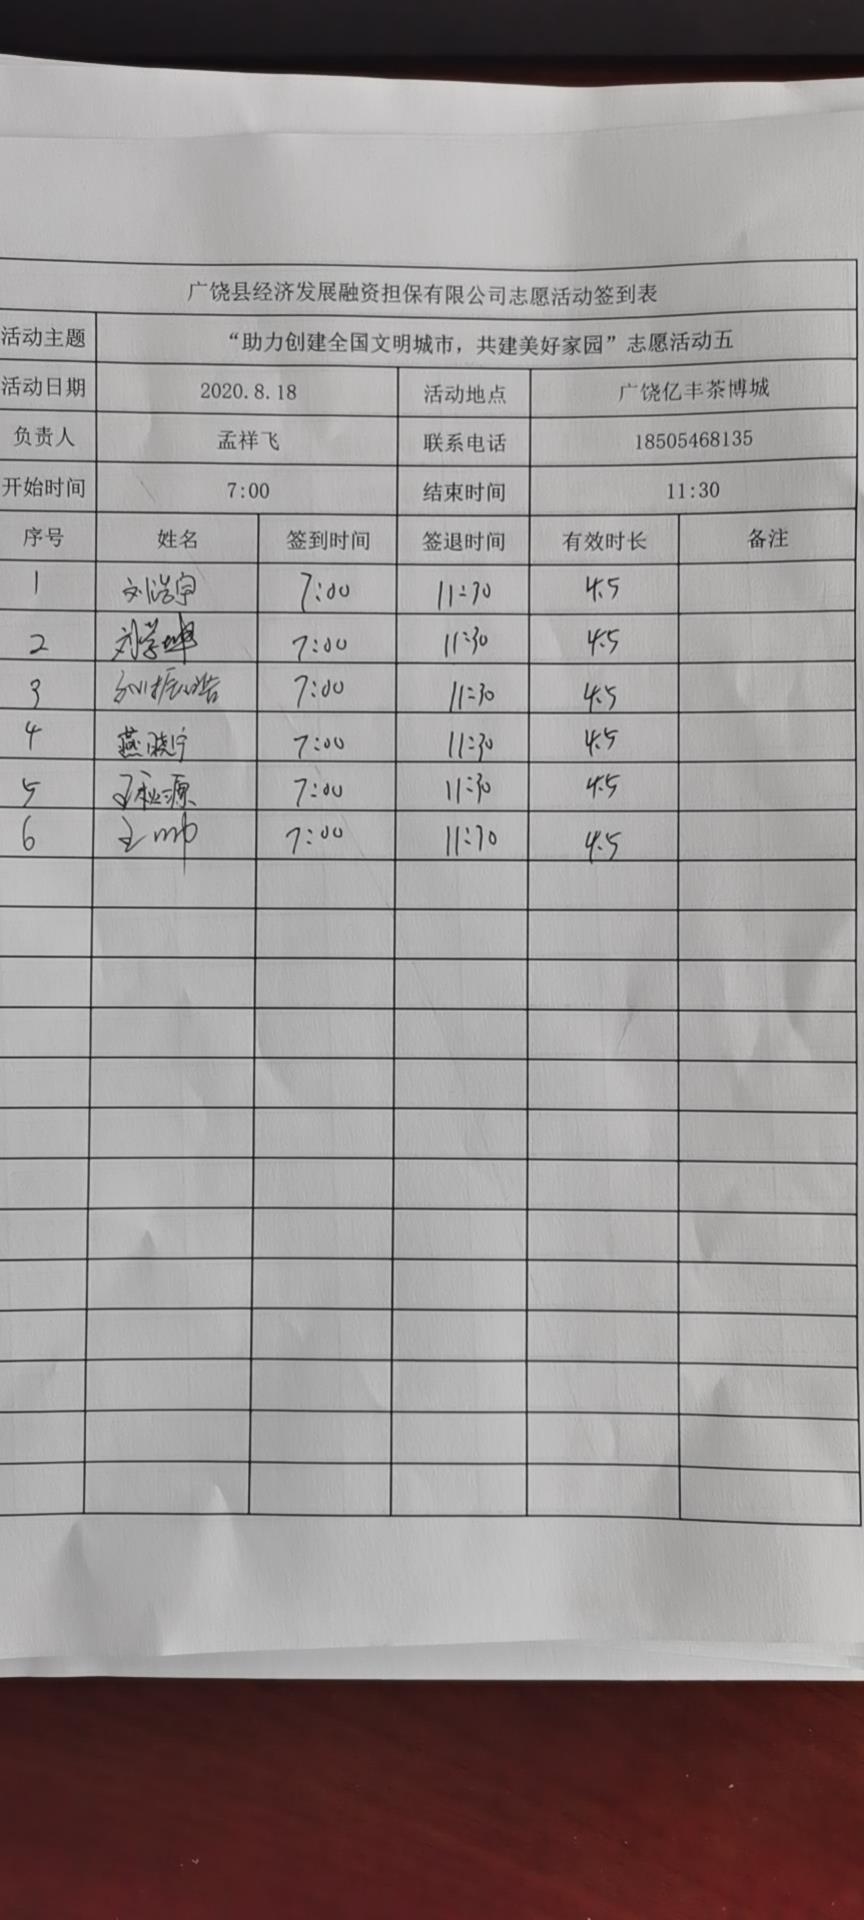 广饶县经济发展融资担保有限公司志愿活动签到表
活动主题 “助力创建全国文明城市，共建美好家园”志愿活动五
活动日期 2020.8.18 活动地点 广饶亿丰茶博城
负责人 孟祥飞 联系电话 18505468135
开始时间 7:00 结束时间 11:30
序号 姓名 签到时间 签退时间 有效时长 备注
1 刘浩宇 7:00 11:30 4.5
2 刘学坤 7:00 11:30 4.5
3 刘振浩 7:00 11:30 4.5
4 燕晓宁 7:00 11:30 4.5
5 7:00 11:30 4.5
6 王帅 7:00 11:30 4.5